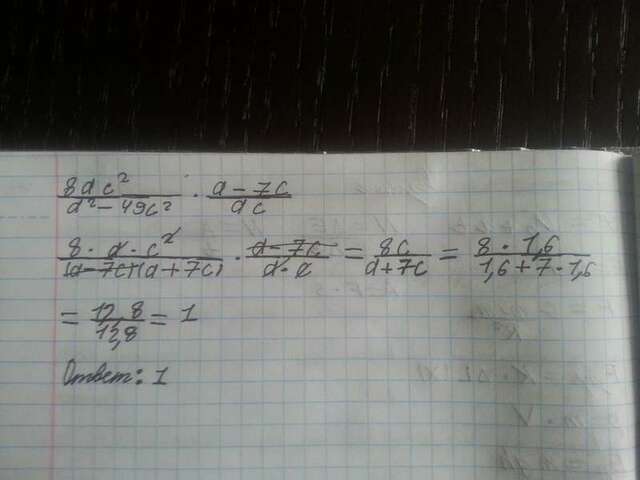 8dc²/d²-49c² · d-7c/dc
8·d·c²/(d-7c)(d+7c) · d-7c/d·c = 8c/d+7c = 8·1,6/1,6+7·1,6
= 12,8/12,8 = 1
Ответ: 1